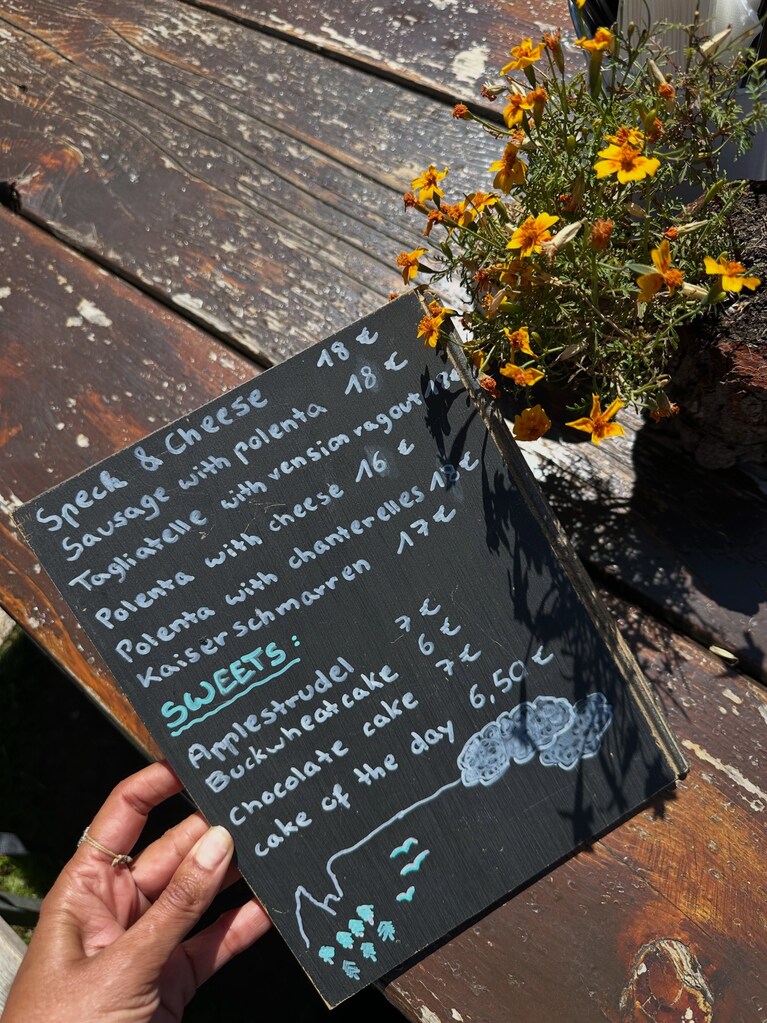 Speck & Cheese 18 €
Sausage with polenta 18 €
Tagliatelle with vension ragout
Polenta with cheese 16 €
Polenta with chanterelles 18 €
Kaiserschmarren 17 €
SWEETS:
Applestrudel 7 €
Buckwheatcake 6 €
Chocolate cake 7 €
cake of the day 6,50 €